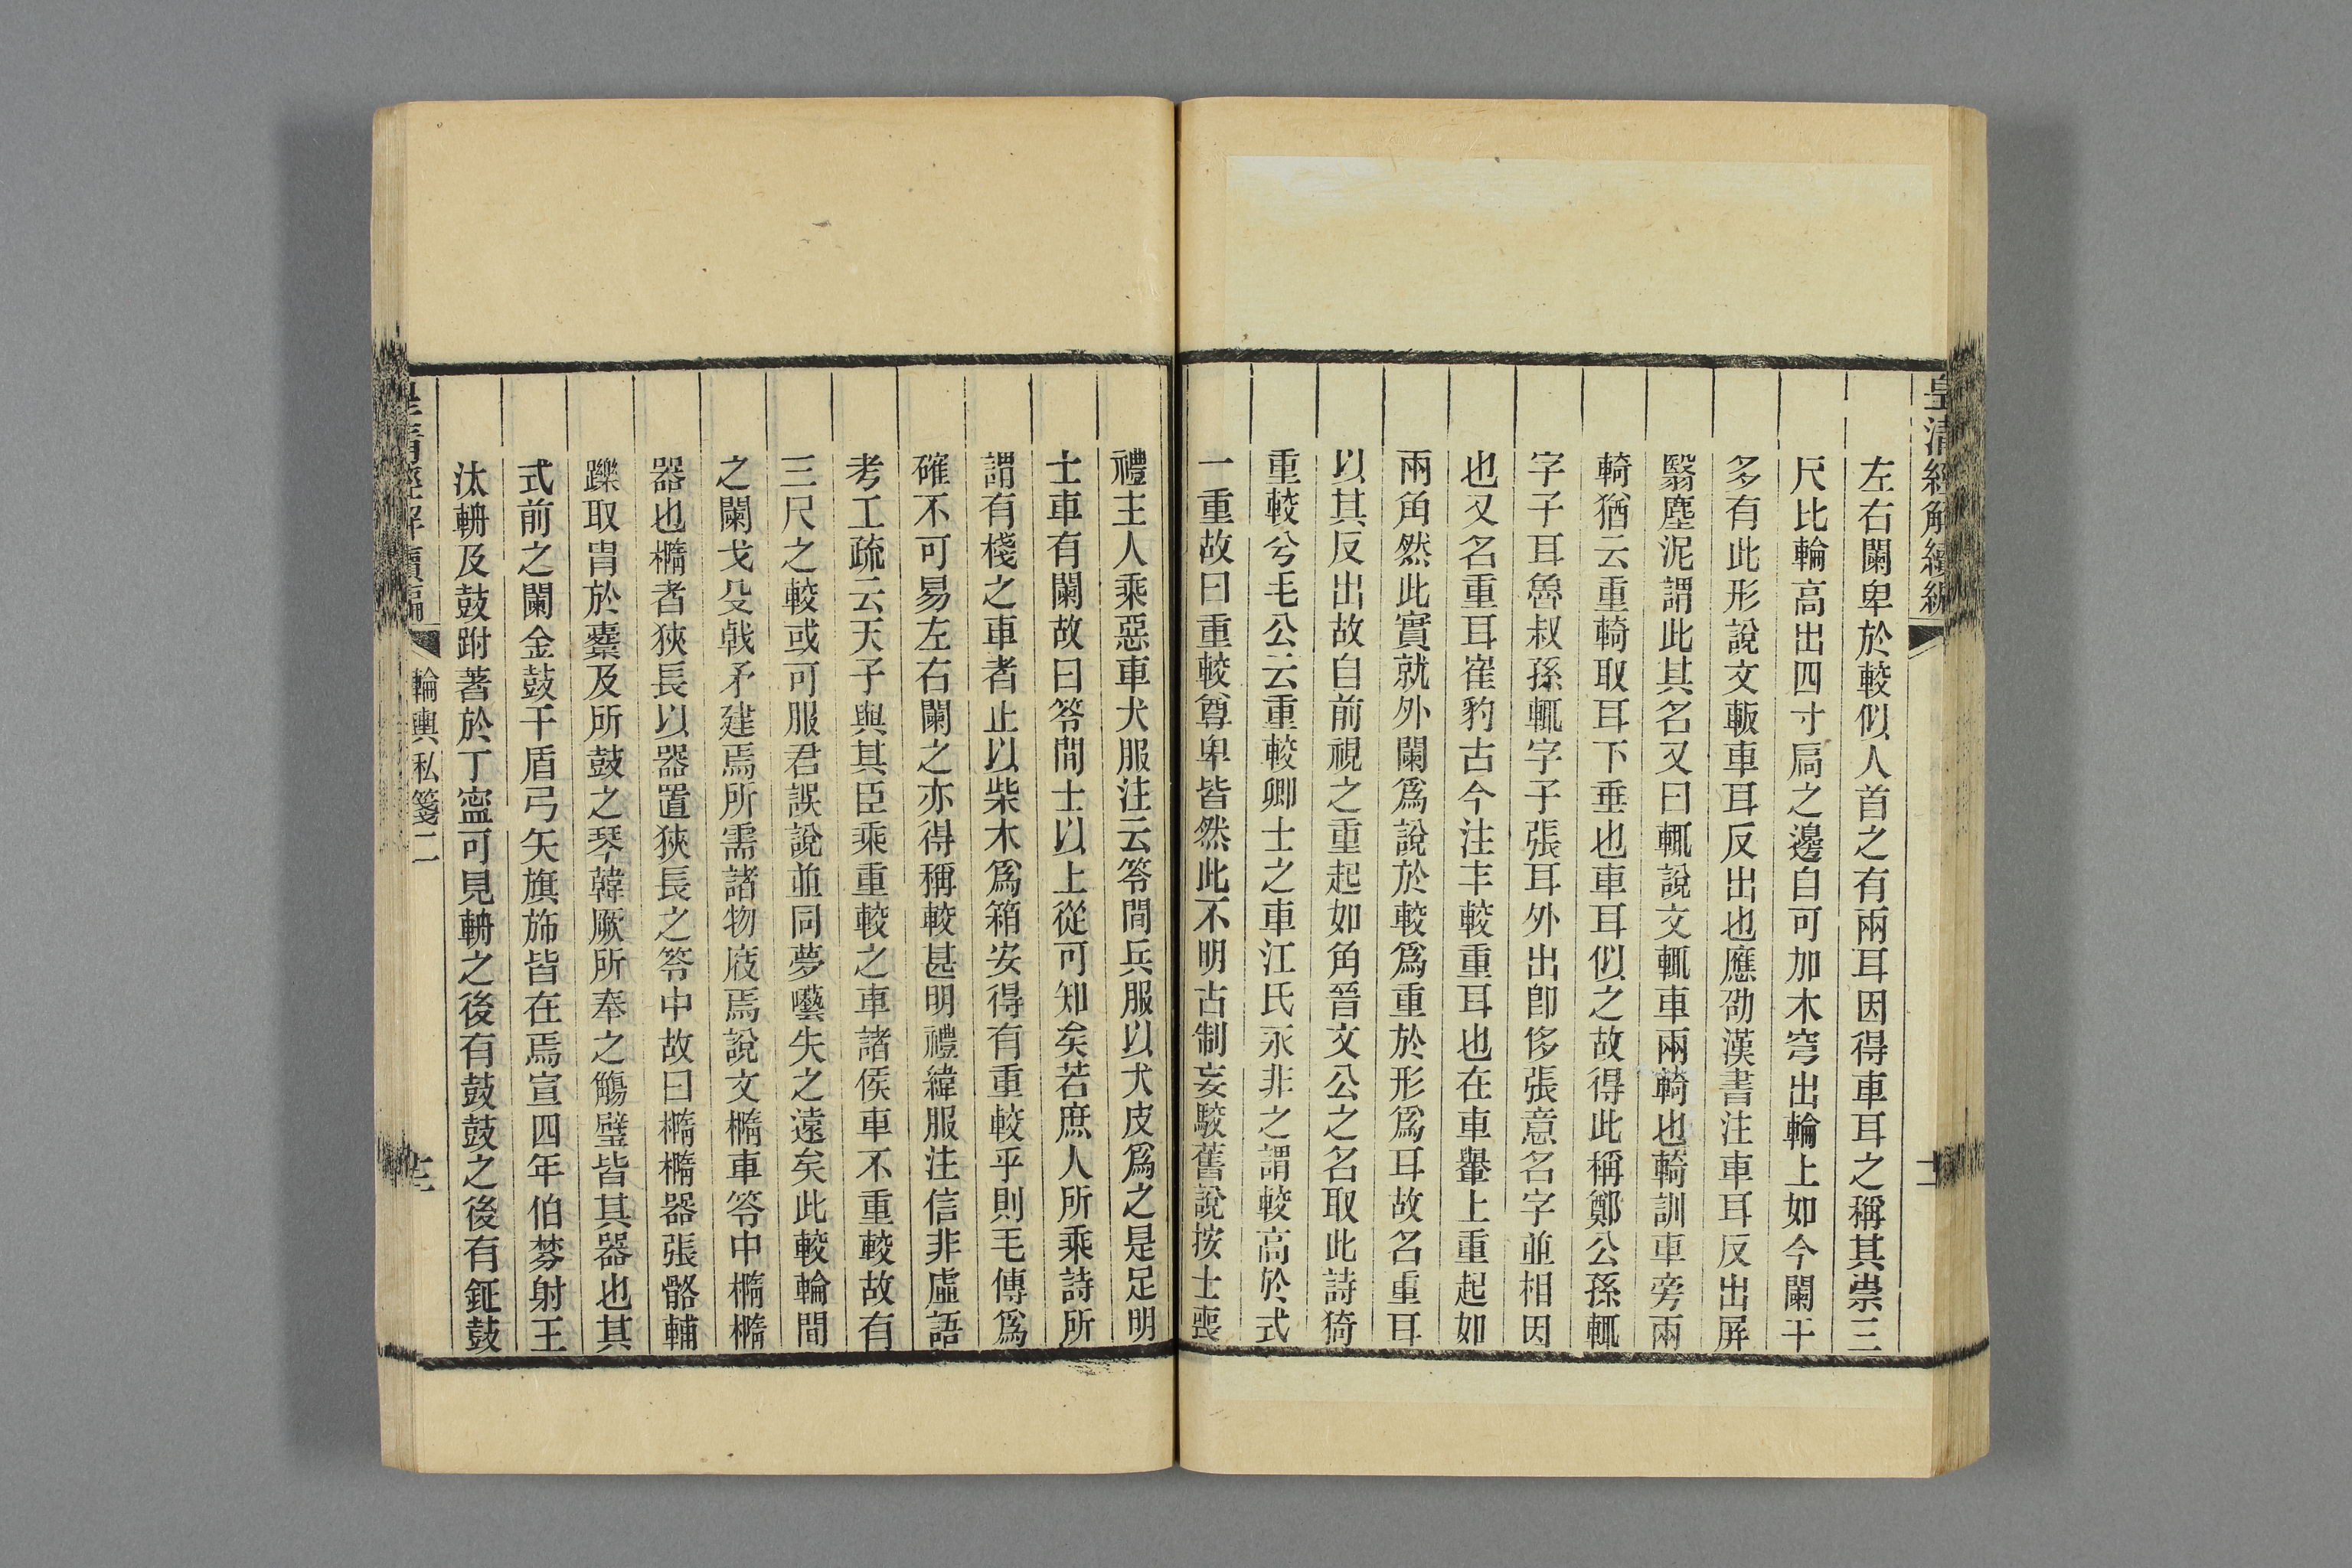 皇清經解續編
左右闌卑於較似人首之有兩耳因得車耳之稱其崇三
尺比輪高出四寸扃之邊自可加木穹出輪上如今闌干
多有此形說文䡊車耳反出也應劭漢書注車耳反出屏
翳塵泥謂此其名又曰輒說文輒車兩輢也輢訓車旁兩
輢猶云重輢取耳下垂也車耳似之故得此稱鄭公孫輒
字子耳魯叔孫輒字子張耳外出卽侈張意名字並相因
也又名重耳崔豹古今注車較重耳也在車轝上重起如
兩角然此實就外闌爲說於較爲重於形爲耳故名重耳
以其反出故自前視之重起如角晉文公之名取此詩猗
重較兮毛公云重較卿士之車江氏永非之謂較高於式
一重故曰重較尊卑皆然此不明古制妄駮舊說按士喪
禮主人乘惡車犬服注云笭閒兵服以犬皮爲之是足明
士車有闌故曰笭閒士以上從可知矣若庶人所乘詩所
謂有棧之車者止以柴木爲箱安得有重較乎則毛傳爲
確不可易左右闌之亦得稱較甚明禮緯服注信非虛語
考工疏云天子與其臣乘重較之車諸侯車不重較故有
三尺之較或可服君誤說並同夢囈失之遠矣此較輪間
之闌戈殳戟矛建焉所需諸物庪焉說文橢車笭中橢橢
器也橢者狹長以器置狹長之笭中故曰橢橢器張骼輔
躒取胄於櫜及所鼓之琴韓厥所奉之觴璧皆其器也其
式前之闌金鼓干盾弓矢旗斾皆在焉宣四年伯棼射王
汰輈及鼓跗著於丁寧可見輈之後有鼓鼓之後有鉦鼓
皇清經解續編
輪輿私箋二